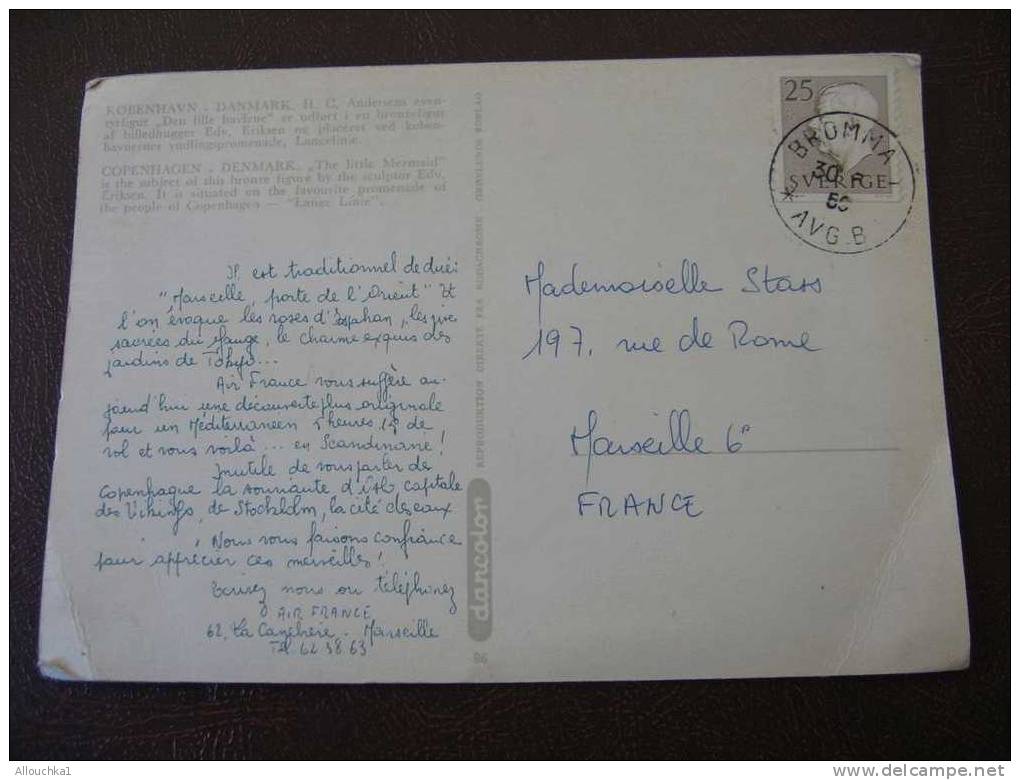 KØBENHAVN - DANMARK. H. C. Andersens even-
tyrfigur „Den lille havfrue" er udført i en bronzefigur
af billedhugger Edv. Eriksen og placeret ved køben-
havnernes yndlingspromenade, Langelinie.
COPENHAGEN - DENMARK. „The little Mermaid"
is the subject of this bronze figure by the sculptor Edv.
Eriksen. It is situated on the favourite promenade of
the people of Copenhagen — "Lange Linie".
Il est traditionnel de dire:
"Marseille, porte de l'Orient" Et
l'on évoque les roses d'Ispahan, les
sacrées du Gange, le charme exquis des
jardins de Tokyo...
Air France vous suggère au-
jourd'hui une découverte plus originale
pour un Méditerranéen 5 heures de
vol et vous voilà... en Scandinavie!
Inutile de vous parler de
Copenhague la souriante, d' capitale
des Vikings, de Stockholm, la cité des eaux
Nous vous faisons confiance
pour apprécier ces merveilles!
Ecrivez nous ou téléphonez
AIR FRANCE
62, La Canebière - Marseille
Tél. 62 38 63
REPRODUKTION DIREKTE FRA KODACHROME - GRØNLUNDS FORLAG
dancolor
86
25
SVERIGE
BROMMA
30
AVG. B
Mademoiselle Stass
197, rue de Rome
Marseille 6e
FRANCE
Allouchka1
delcampe.net